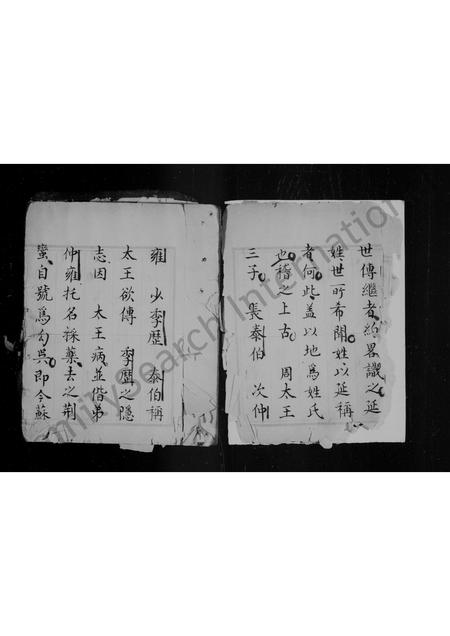 世傳繼者約畧譏之延
姓世所希聞姓以延稱
者何此盖以地爲姓氏
也稽之上古 周太王
三子 長泰伯 次仲
雍 少季歷 泰伯稱
太王欲傳 季歷之隱
志因 太王病並偕弟
仲雍托名採藥去之荆
蠻自號爲勾吳即今蘇